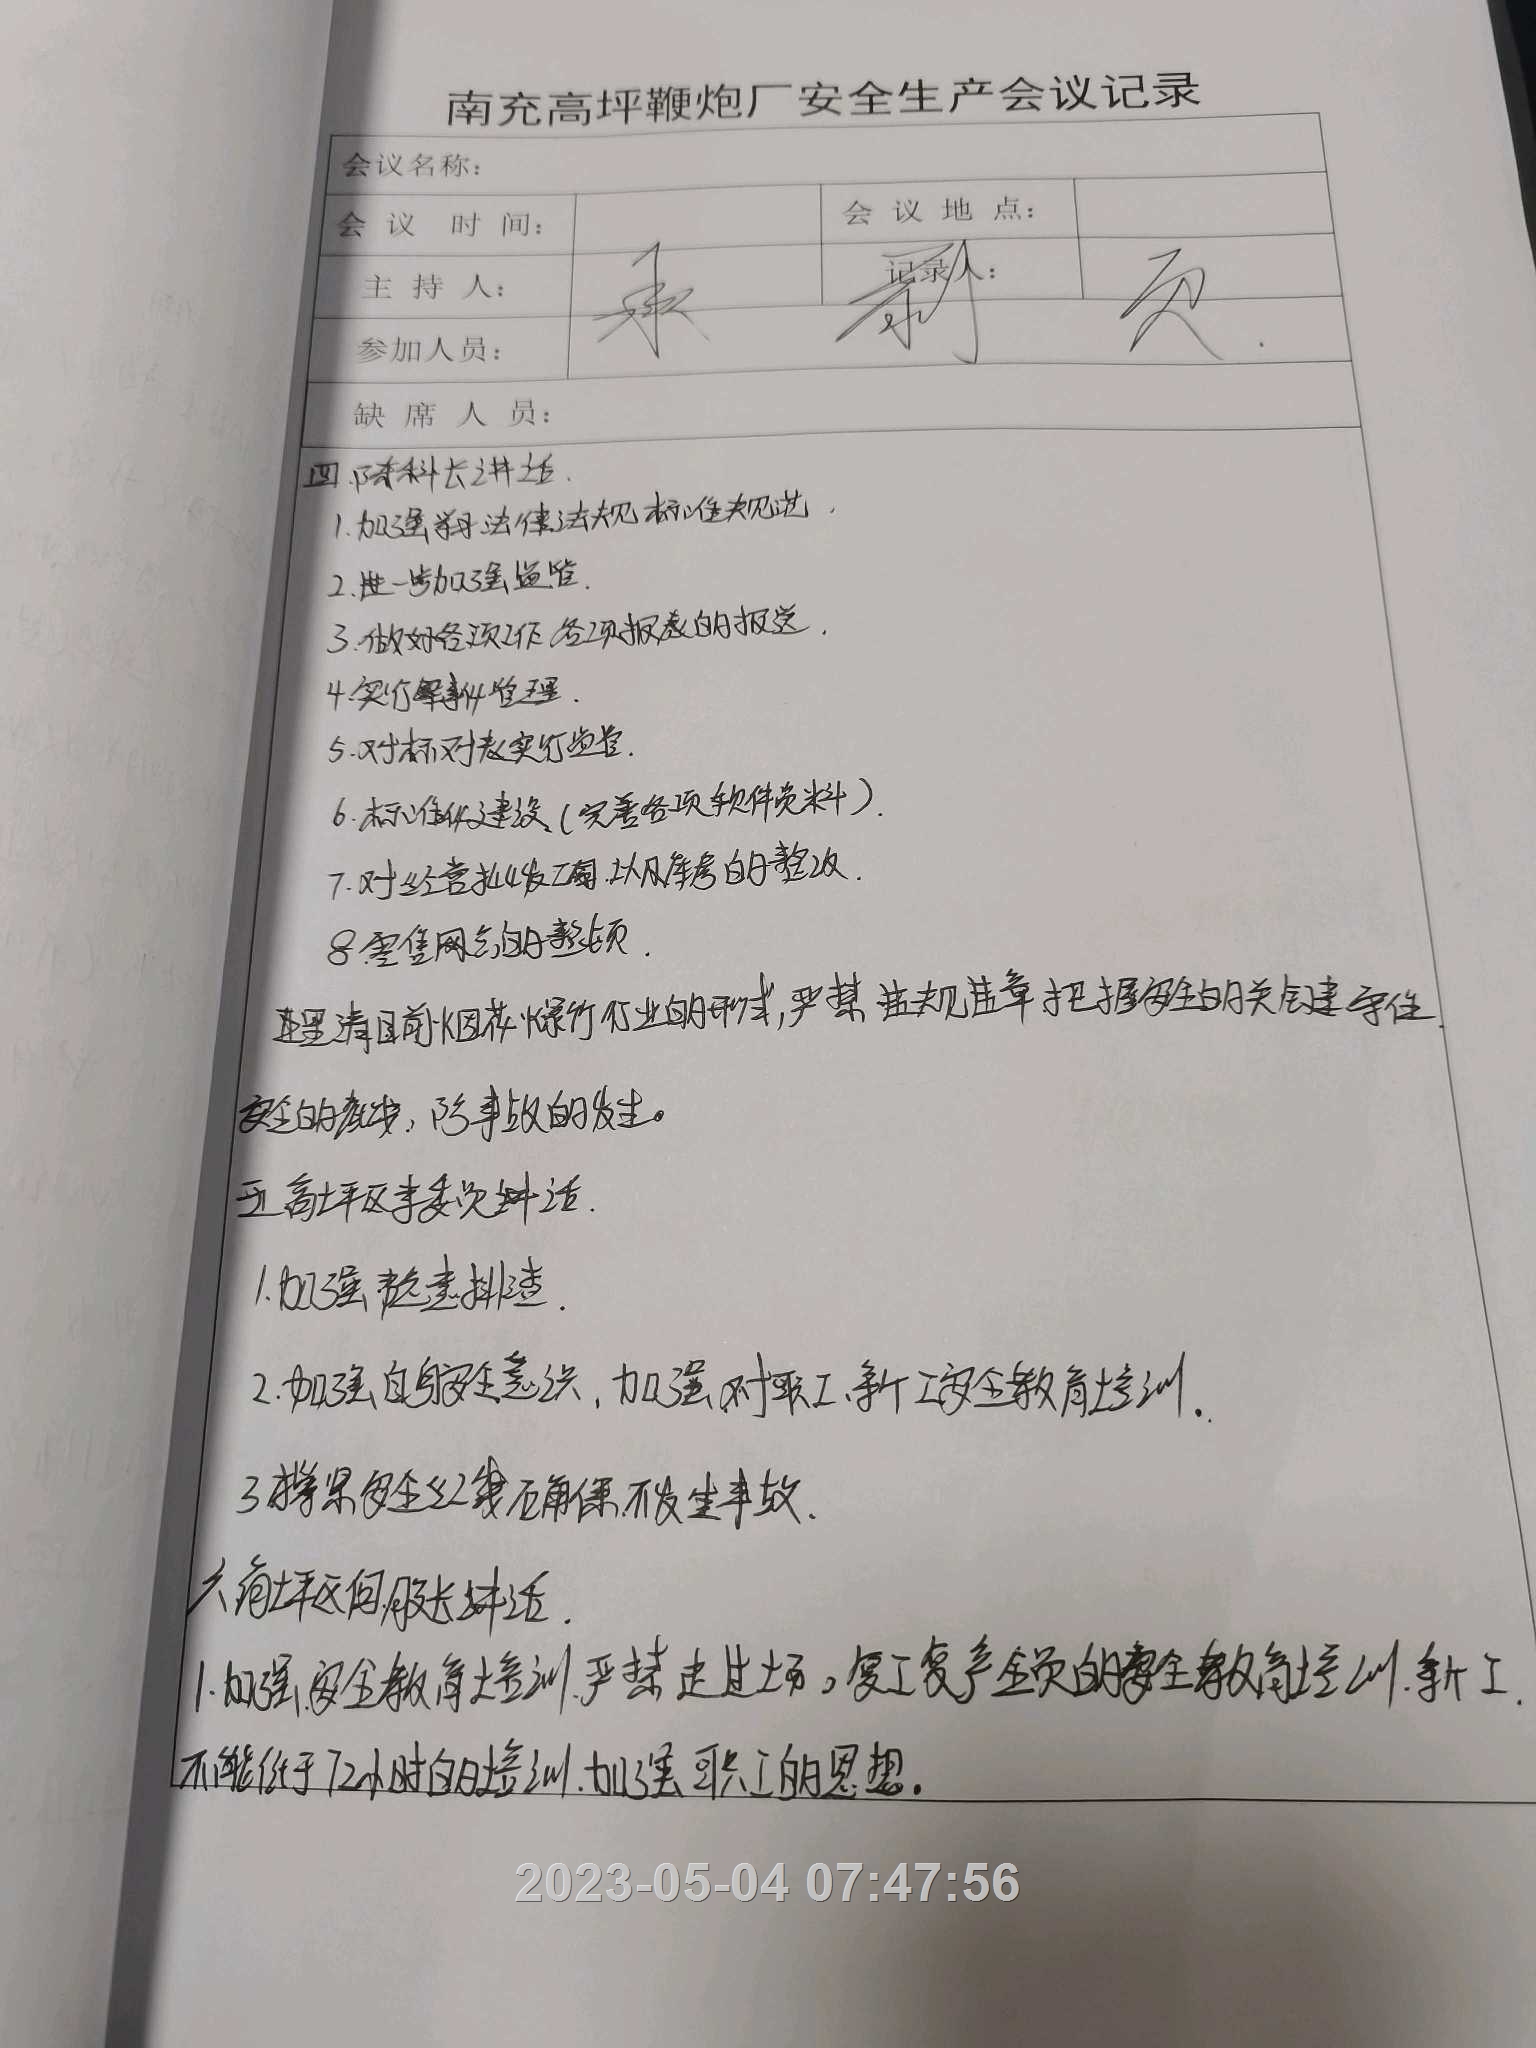 南充高坪鞭炮厂安全生产会议记录
会议名称：
会议时间： 会议地点：
主持人： 记录人：
参加人员：
承 前 页.
缺席人员：
四.陈科长讲话.
1.加强学习法律法规标准规范.
2.进一步加强监管.
3.做好各项工作各项报表的报送.
4.实行事件管理.
5.对标对表实行监管.
6.标准化建设(完善各项软件资料).
7.对经营批发 以及库房的整改.
8.零售网点的整顿.
理清目前烟花爆竹行业的形式,严禁违规违章把握安全的关 守住.
安全的底线,防事故的发生。
五高坪区李委员讲话.
1.加强隐患排查.
2.加强自身安全意识,加强对职工.新工安全教育培训.
3 紧安全红线确保不发生事故.
六高坪区何股长讲话.
1.加强安全教育培训.严禁走过场,复工复产全员的安全教育培训.新工.
不能低于72小时的培训.加强职工的思想.
2023-05-04 07:47:56